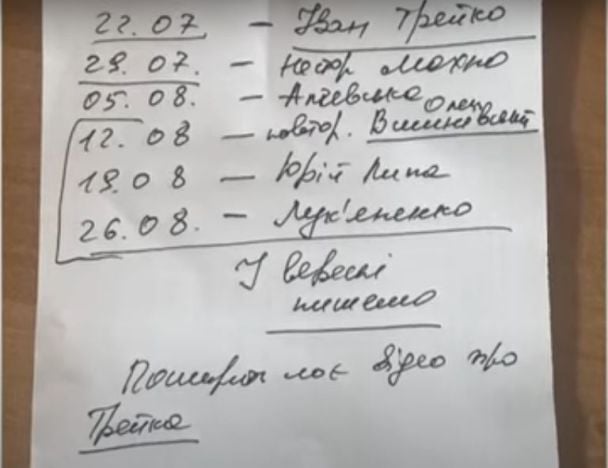 22.07 – Іван Трейко
29.07. – Нестор Махно
05.08. – Алчевська
12.08 – повтор. Вишнівський
19.08 – Юрій Липа
26.08. – Лук'яненко
У вересні
пишемо
моє відео про
Трейка